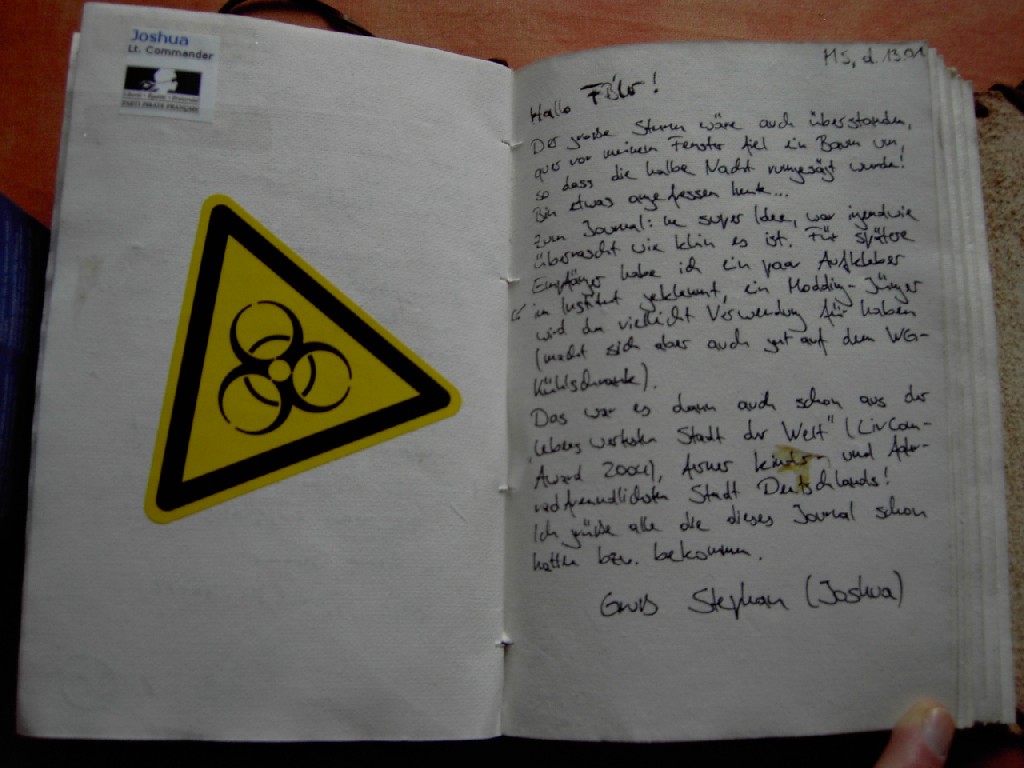 Joshua
Lt. Commander
PARTI PIRATE FRANÇAIS
MS, d. 13.01
Hallo Föhr!
Der große Sturm wäre auch überstanden,
quer vor meinem Fenster fiel ein Baum um,
so dass die halbe Nacht rumgesägt wurde!
Bin etwas angefressen heute...
Zum Journal: ne super Idee, war irgendwie
überrascht wie klein es ist. Für spätere
Empfänger habe ich ein paar Aufkleber
im Institut geklemmt, ein Modding-Jünger
wird da vielleicht Verwendung für haben
(macht sich aber auch gut auf dem WG-
Kühlschrank).
Das war es dann auch schon aus der
"lebenswertesten Stadt der Welt" (LivCom-
Award 2004), ferner kinder- und
radfreundlichsten Stadt Deutschlands!
Ich grüße alle die dieses Journal schon
hatten bzw. bekommen.
Gruß Stephan (Joshua)